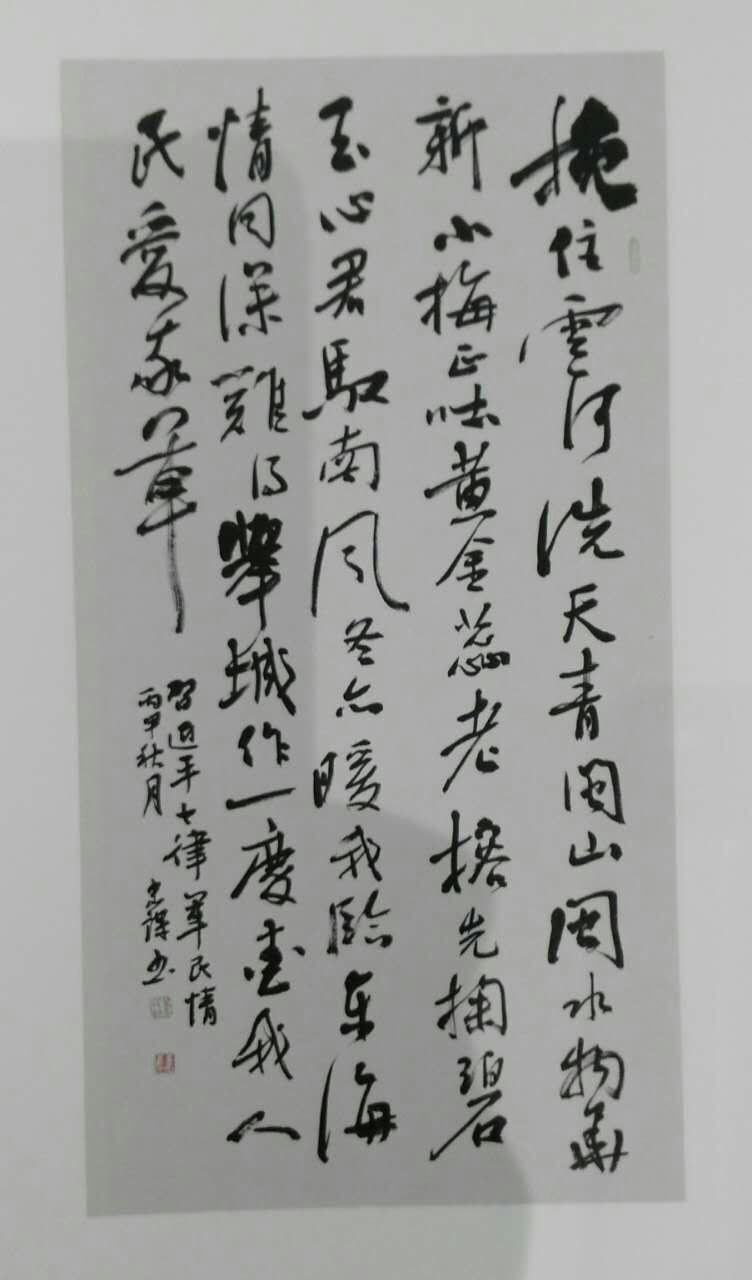 挽住雲河洗天青闽山闽水物華
新小梅正吐黄金蕊老榕先掬碧
玉心君馭南风冬亦暖我臨东海
情同深難得舉城作一慶爱我人
民爱我军
習近平七律军民情
丙申秋月 书